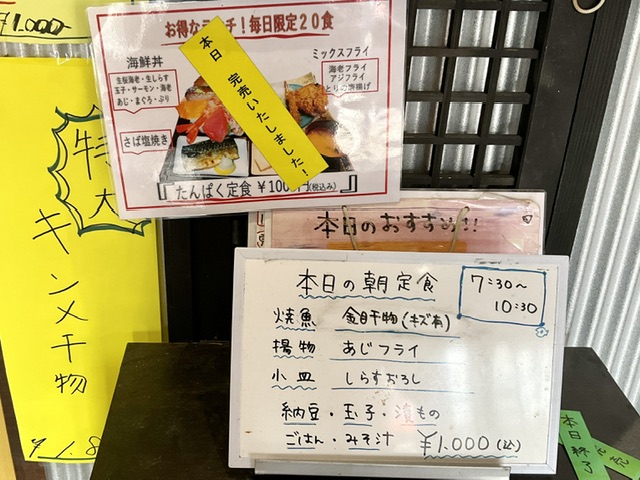 ¥1.000
お得なランチ！毎日限定２０食
海鮮丼
生桜海老・生しらす
玉子・サーモン・海老
あじ・まぐろ・ぶり
さば塩焼き
ミックスフライ
海老フライ
アジフライ
とりの唐揚げ
本日 完売いたしました！
たんぱく定食 ¥100 円(税込み)
特大
キンメ干物
¥1.8
本日のおすすめ!!
本日の朝定食
7:30〜
10:30
焼魚 金目干物(キズ有)
揚物 あじフライ
小皿 しらすおろし
納豆・玉子・漬もの
ごはん・みそ汁 ¥1.000(込)
本日終了
完売